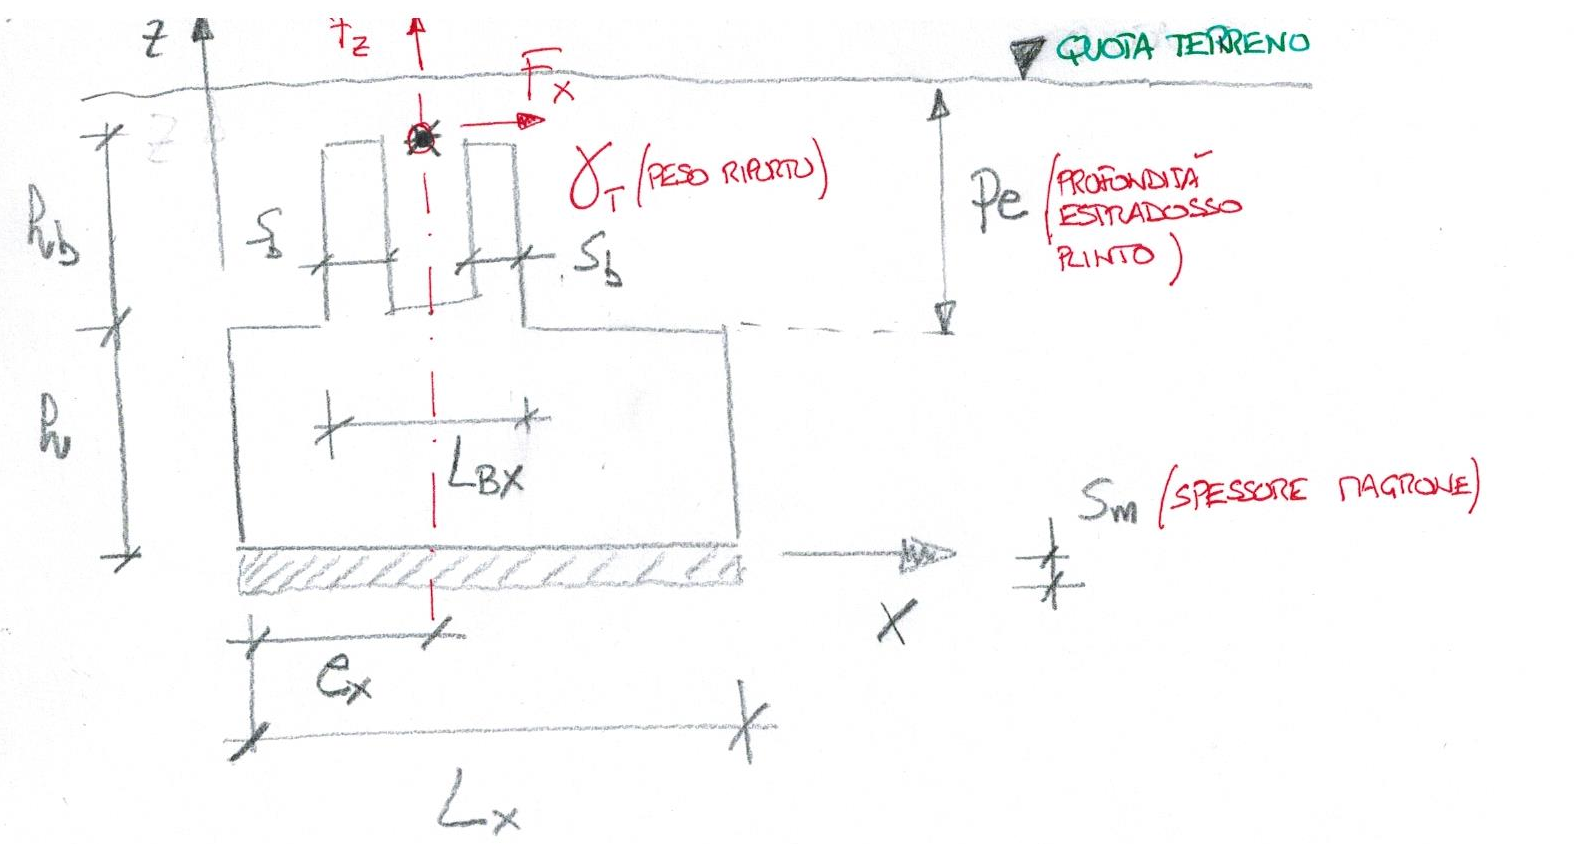 z
Fz
Fx
QUOTA TERRENO
γT (PESO RIPORTO)
Pe (PROFONDITÀ
ESTRADOSSO
PLINTO)
hb
Sb
Sb
h
LBX
Sm (SPESSORE MAGRONE)
X
ex
Lx